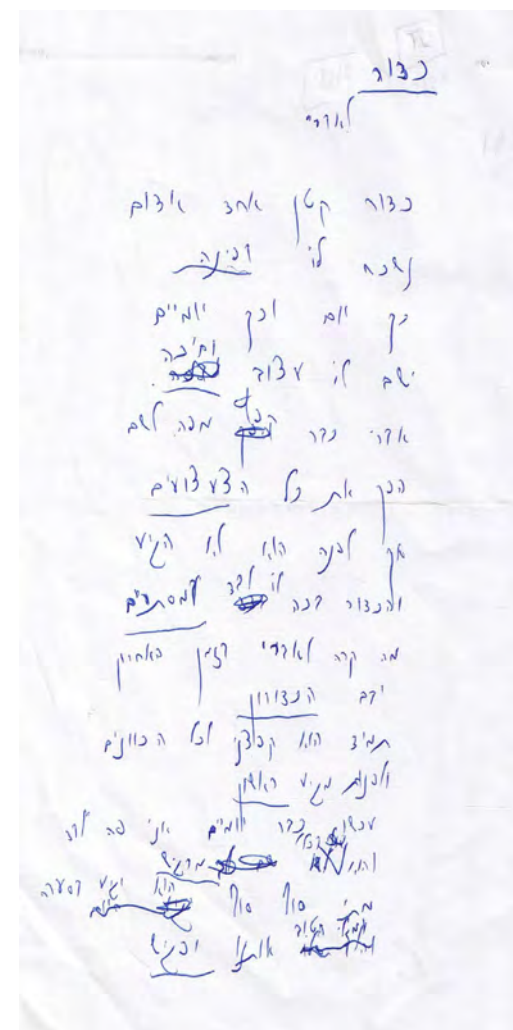 כדור
לאדרי
כדור קטן אחד אדום
נשכח לו בפינה
כך יום וכך יומיים
ישב לו עצוב וחיכה
אדרי כבר הפך מפה לשם
הפך את כל הצעצועים
אך לפינה הוא לא הגיע
והכדור בכה לו לבד למסתרים
מה קרה לאדרי בזמן האחרון
יבב הכדורון
תמיד הוא קפצני לכל הכוונים
ולפנות מגיע ראשון
עכשו כבר יומיים אני פה לבד
מרגיש
מתי סוף סוף הוא יגיע בסערה
אותי ופגיש